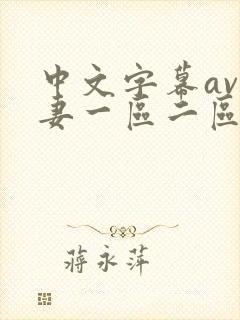 中文字幕av
妻一區二區
蔣永萍